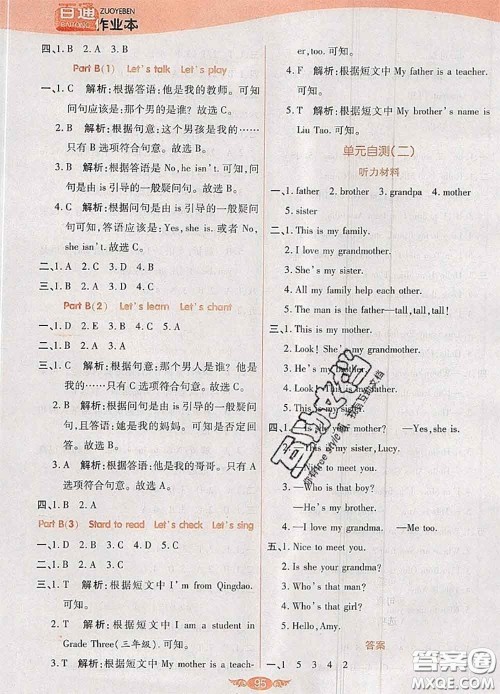 百通
BAITONG
ZUOYEBEN
作业本
四、1. B 2. A 3. B
Part B(1) Let's talk Let's play
一、1. C 解析:根据答语:他是我的教师。可知
问句应该是:那个男的是谁?故选C。
2. B 解析:根据句意:这个男孩是我的……
只有B选项符合句意。故选B。
3. B 解析:根据答语是No, he isn't. 可知
问句是由is引导的一般疑问句。故选B。
4. C 解析:问句是由is引导的一般疑问
句可知,答语应该是:Yes, she is. 或者No,
she isn't. 故选C。
二、1. A 2. C 3. D 4. B
三、1. C 2. D 3. B 4. A
Part B(2) Let's learn Let's chant
一、1. B 2. D 3. C 4. A
二、1. B 2. C 3. D 4. B 5. A
三、1. C 解析:根据答语:那个男人是谁?故
可知:他是我的……只有C选项符合句意。
故选C。
2. B 解析:问句是由is引导的一般疑问
句,且答语:她是我的妈妈。可知是否定回
答。故选B。
3. A 解析:根据答语:他是我的哥哥。只有A
选项符合句意。故选A。
四、1. B 2. A
Part B(3) Stard to read Let's check Let's sing
一、1. D 2. C 3. A 4. B
二、1. C 2. A 3. D 4. B
三、1. T 解析:根据短文中I'm from Qingdao. 可知。
2. T 解析:根据短文中I am a student in
Grade Three(三年级). 可知。
3. T 解析:根据短文中My mother is a teach-
er, too. 可知。
4. F 解析:根据短文中My father is a teacher.
可知。
5. T 解析:根据短文中My brother's name is
Liu Tao. 可知。
单元自测(二)
听力材料
一、1. father 2. brother 3. grandpa 4. mother
5. sister
二、1. This is my family.
2. I love my grandmother.
3. She's my sister.
4. All my family help each other.
5. The man is the father—tall, tall, tall!
三、1. This is my mother.
2. Look! She's my grandmother.
3. He's my
4. Look! This is my
5. This is my
四、1. Is she your mother? —Yes, she is.
2. This is my sister, Lucy.
—Nice to meet you.
3. —Who is that boy?
—He's my brother.
4. —I love my grandma. —Me too.
五、1. Nice to meet you.
2. Who's he?
3. Who's that man?
4. Who's that girl?
5. Hello, Amy.
答案
一、1 5 3 4 2
95
答案圈
MXQE.COM